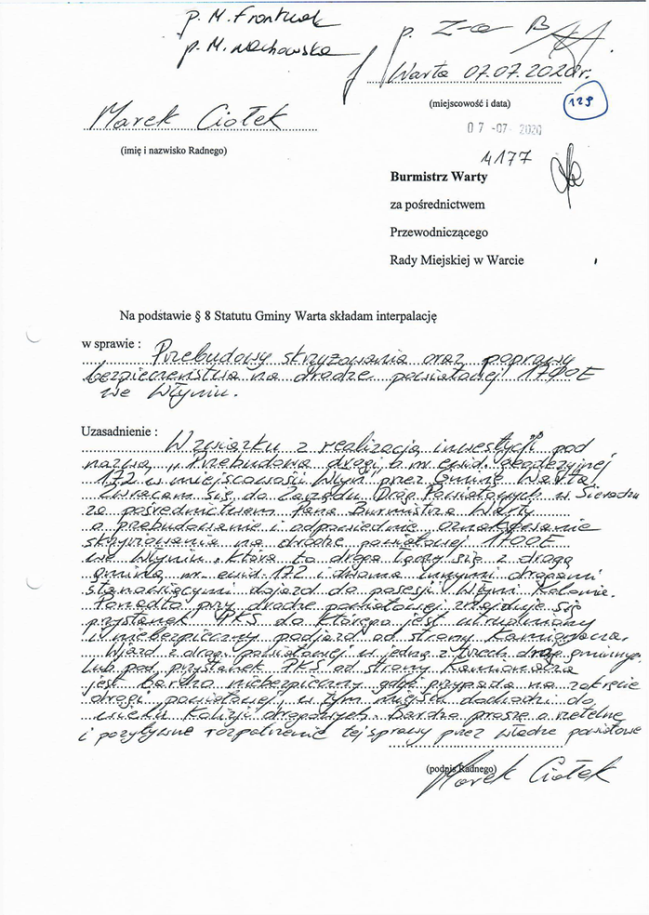 p. M. Frontczak
p. M. Wachowska
p. Z-ca B
Warta 07.07.2020r.
(miejscowość i data)
129
Marek Ciołek
(imię i nazwisko Radnego)
07 -07- 2020
4177
Burmistrz Warty
za pośrednictwem
Przewodniczącego
Rady Miejskiej w Warcie
Na podstawie § 8 Statutu Gminy Warta składam interpalację
w sprawie : Przebudowy skrzyżowania oraz poprawy
bezpieczeństwa na drodze powiatowej 1700E
we Włyniu.
Uzasadnienie :
W związku z realizacją inwestycji pod
nazwą „Przebudowa drogi o nr ewid. geodezyjnej
172 w miejscowości Włyń" przez Gminę Warta
zwracam się do Zarządu Dróg Powiatowych w Sieradzu
za pośrednictwem Pana Burmistrza Warty
o przebudowanie i odpowiednie oznakowanie
skrzyżowania na drodze powiatowej 1700E
we Włyniu, która to droga łączy się z drogą
gminną nr. ewid. 172 i dwoma innymi drogami
stanowiącymi dojazd do posesji Włyń Kolonia.
Ponadto przy drodze powiatowej znajduje się
przystanek PKS do którego jest utrudniony
i niebezpieczny podjazd od strony Kamionacza.
Wjazd z drogi powiatowej w jedną z trzech dróg gminnych
lub pod przystanek PKS od strony Kamionacza
jest bardzo niebezpieczny gdyż przypada na zakręcie
drogi powiatowej, w tym miejscu dochodzi do
wielu kolizji drogowych. Bardzo proszę o rzetelne
i pozytywne rozpatrzenie tej sprawy przez władze powiatowe
(podpis Radnego)
Marek Ciołek